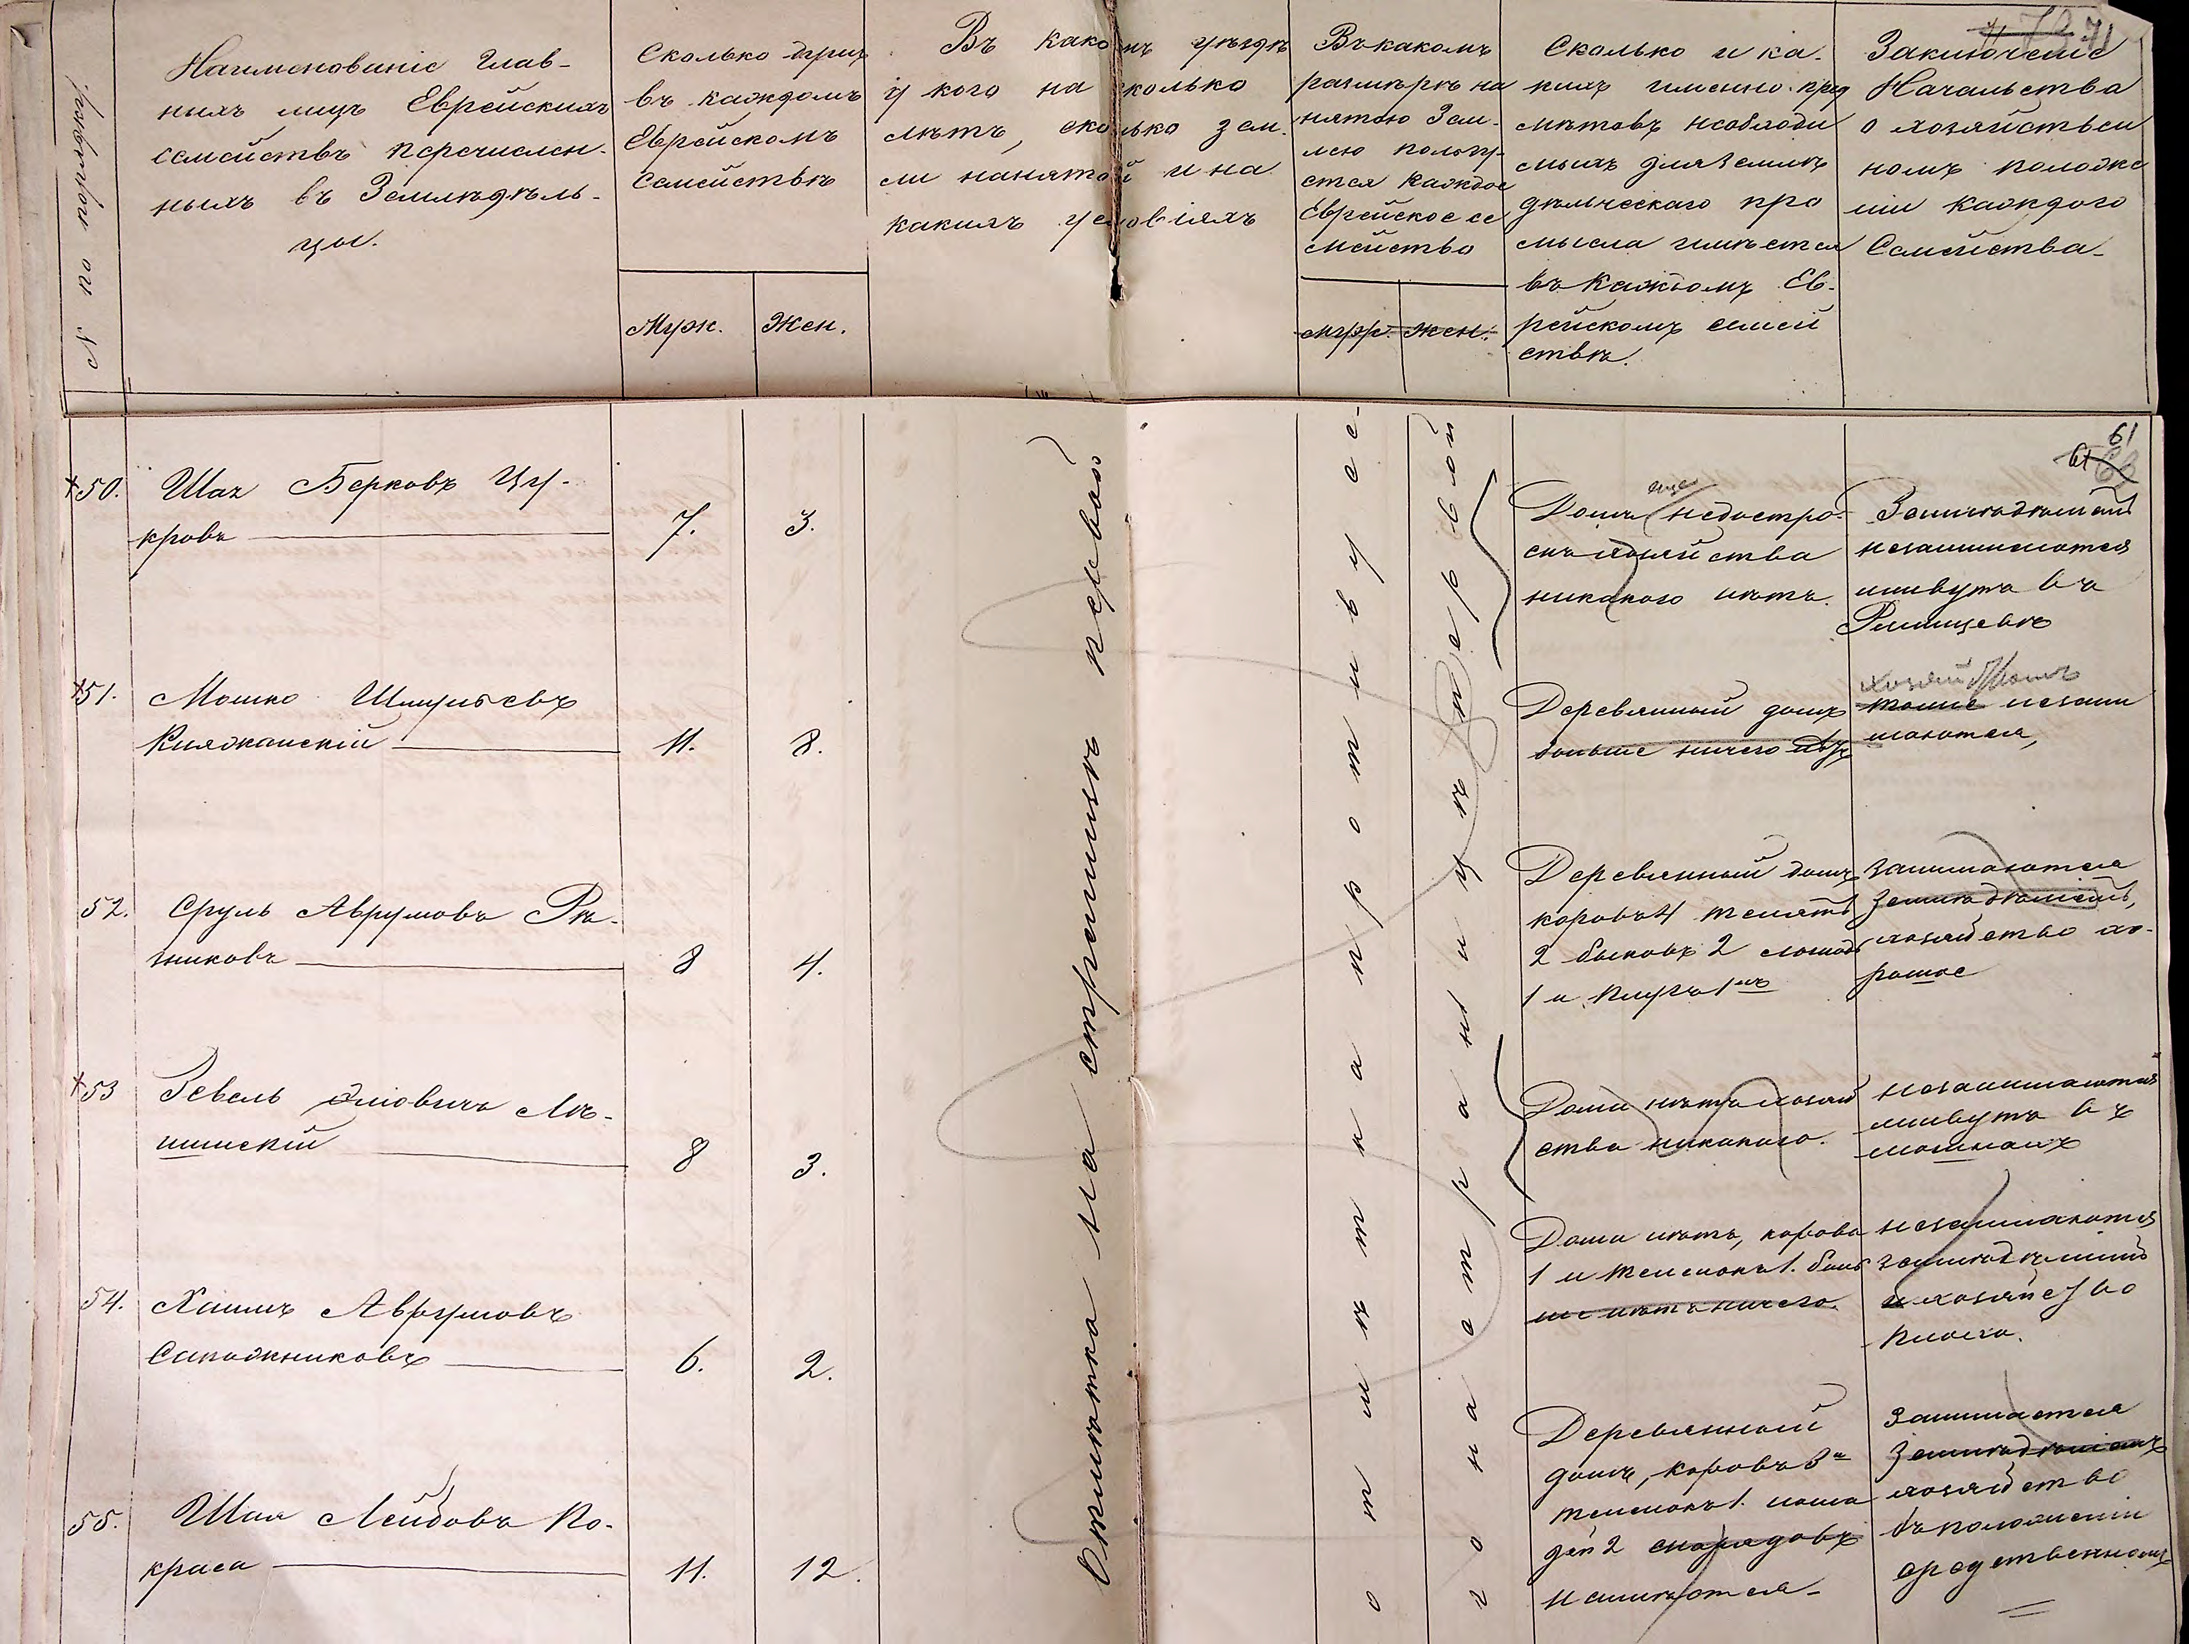 № по порядку
Наименованіе глав-
ныхъ лицъ Еврейскихъ
семействъ перечислен-
ныхъ въ Земледѣль-
цы.
Сколько душъ
въ каждомъ
Еврейскомъ
Семействѣ
Муж. Жен.
Въ какомъ уѣздѣ
у кого на сколько
лѣтъ, сколько зем.
ли нанятой и на
какихъ условіяхъ
Въ какомъ
размѣрѣ на
нятою Зем-
лею пользу-
ется каждое
Еврейское се
мейство
муж. жен.
Сколько и ка-
кихъ именно пред
метовъ необходи
мыхъ для земле
дѣльческаго про
мысла имѣется
въ каждомъ Ев-
рейскомъ семей
ствѣ.
Заключеніе
Начальства
о хозяйствен
номъ положе
ніи каждого
Семейства
71
61
50. Шая Берковъ Цу-
кровъ 7. 3.
Дома еще недостро-
енъ хозяйства
никакого нѣтъ.
Земледѣліемъ
незанимаются
живутъ въ
51. Мошко Шмулевъ
11. 8.
Деревянный домъ
больше ничего нѣтъ
хозяйствомъ
незани
маются,
52. Сруль Аврумовъ Рѣ-
зниковъ 8 4.
Деревянный домъ
коровъ 4 телятъ
2 быковъ 2 лошадь
1 и плугъ 1нъ
занимаются
земледѣліемъ,
хозяйство хо-
рошое
53 Зевель
8 3.
Дома нѣтъ хозяй
ства никакого.
незанимаются
живутъ въ
54. Хаимъ Аврумовъ
Сапожниковъ 6. 2.
Дома нѣтъ, корова
1 и теленокъ 1. боль
ше нѣтъ ничего.
незанимаются
земледѣліемъ
и хозяйство
плохо.
55. Шая Лейбовъ По-
краса 11. 12.
Деревянный
домъ, коровъ 3и
теленокъ 1. лоша
дей 2 снарядовъ
не имѣются
занимается
земледѣліемъ
хозяйство
въ положеніи
средственномъ
Отмѣтка на страницѣ первой
отмѣтка противу се-
го на страницѣ первой